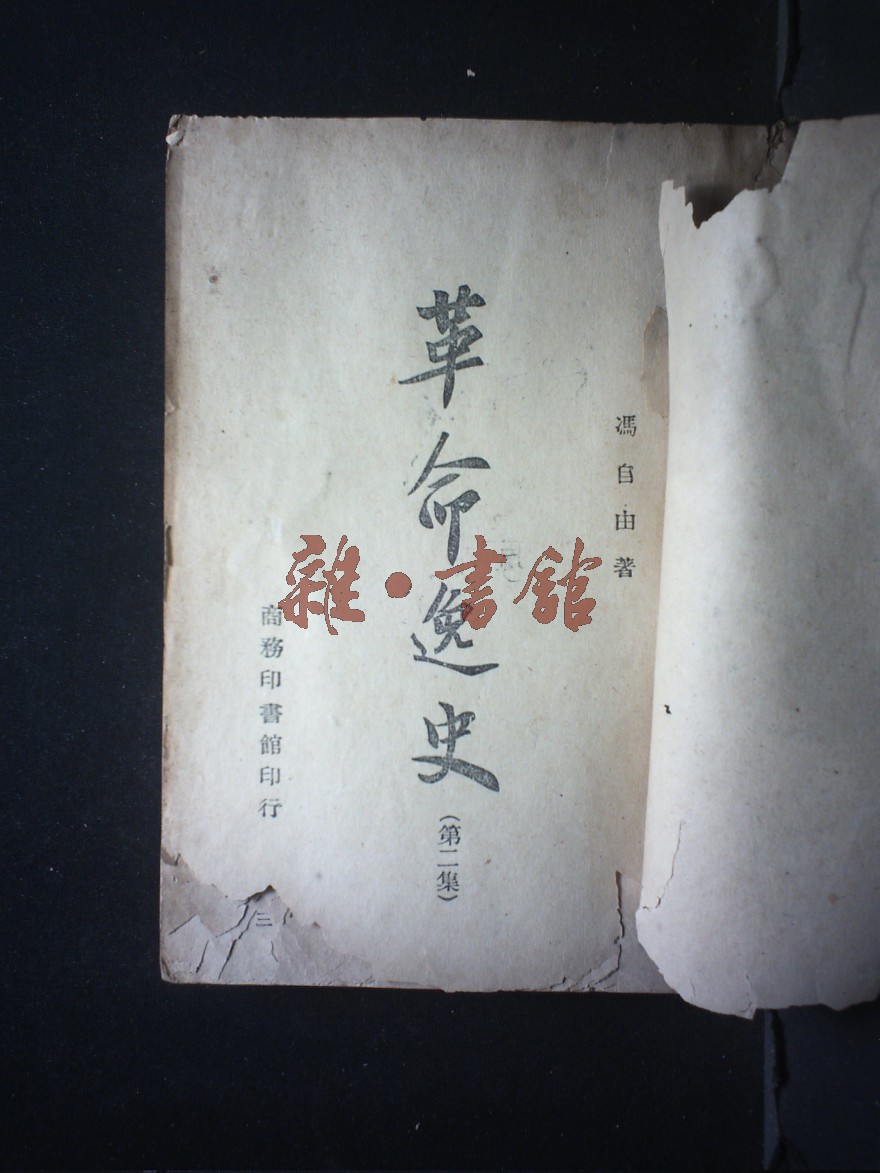 馮自由著
革命逸史
（第二集）
商務印書館印行
二
雜·書館